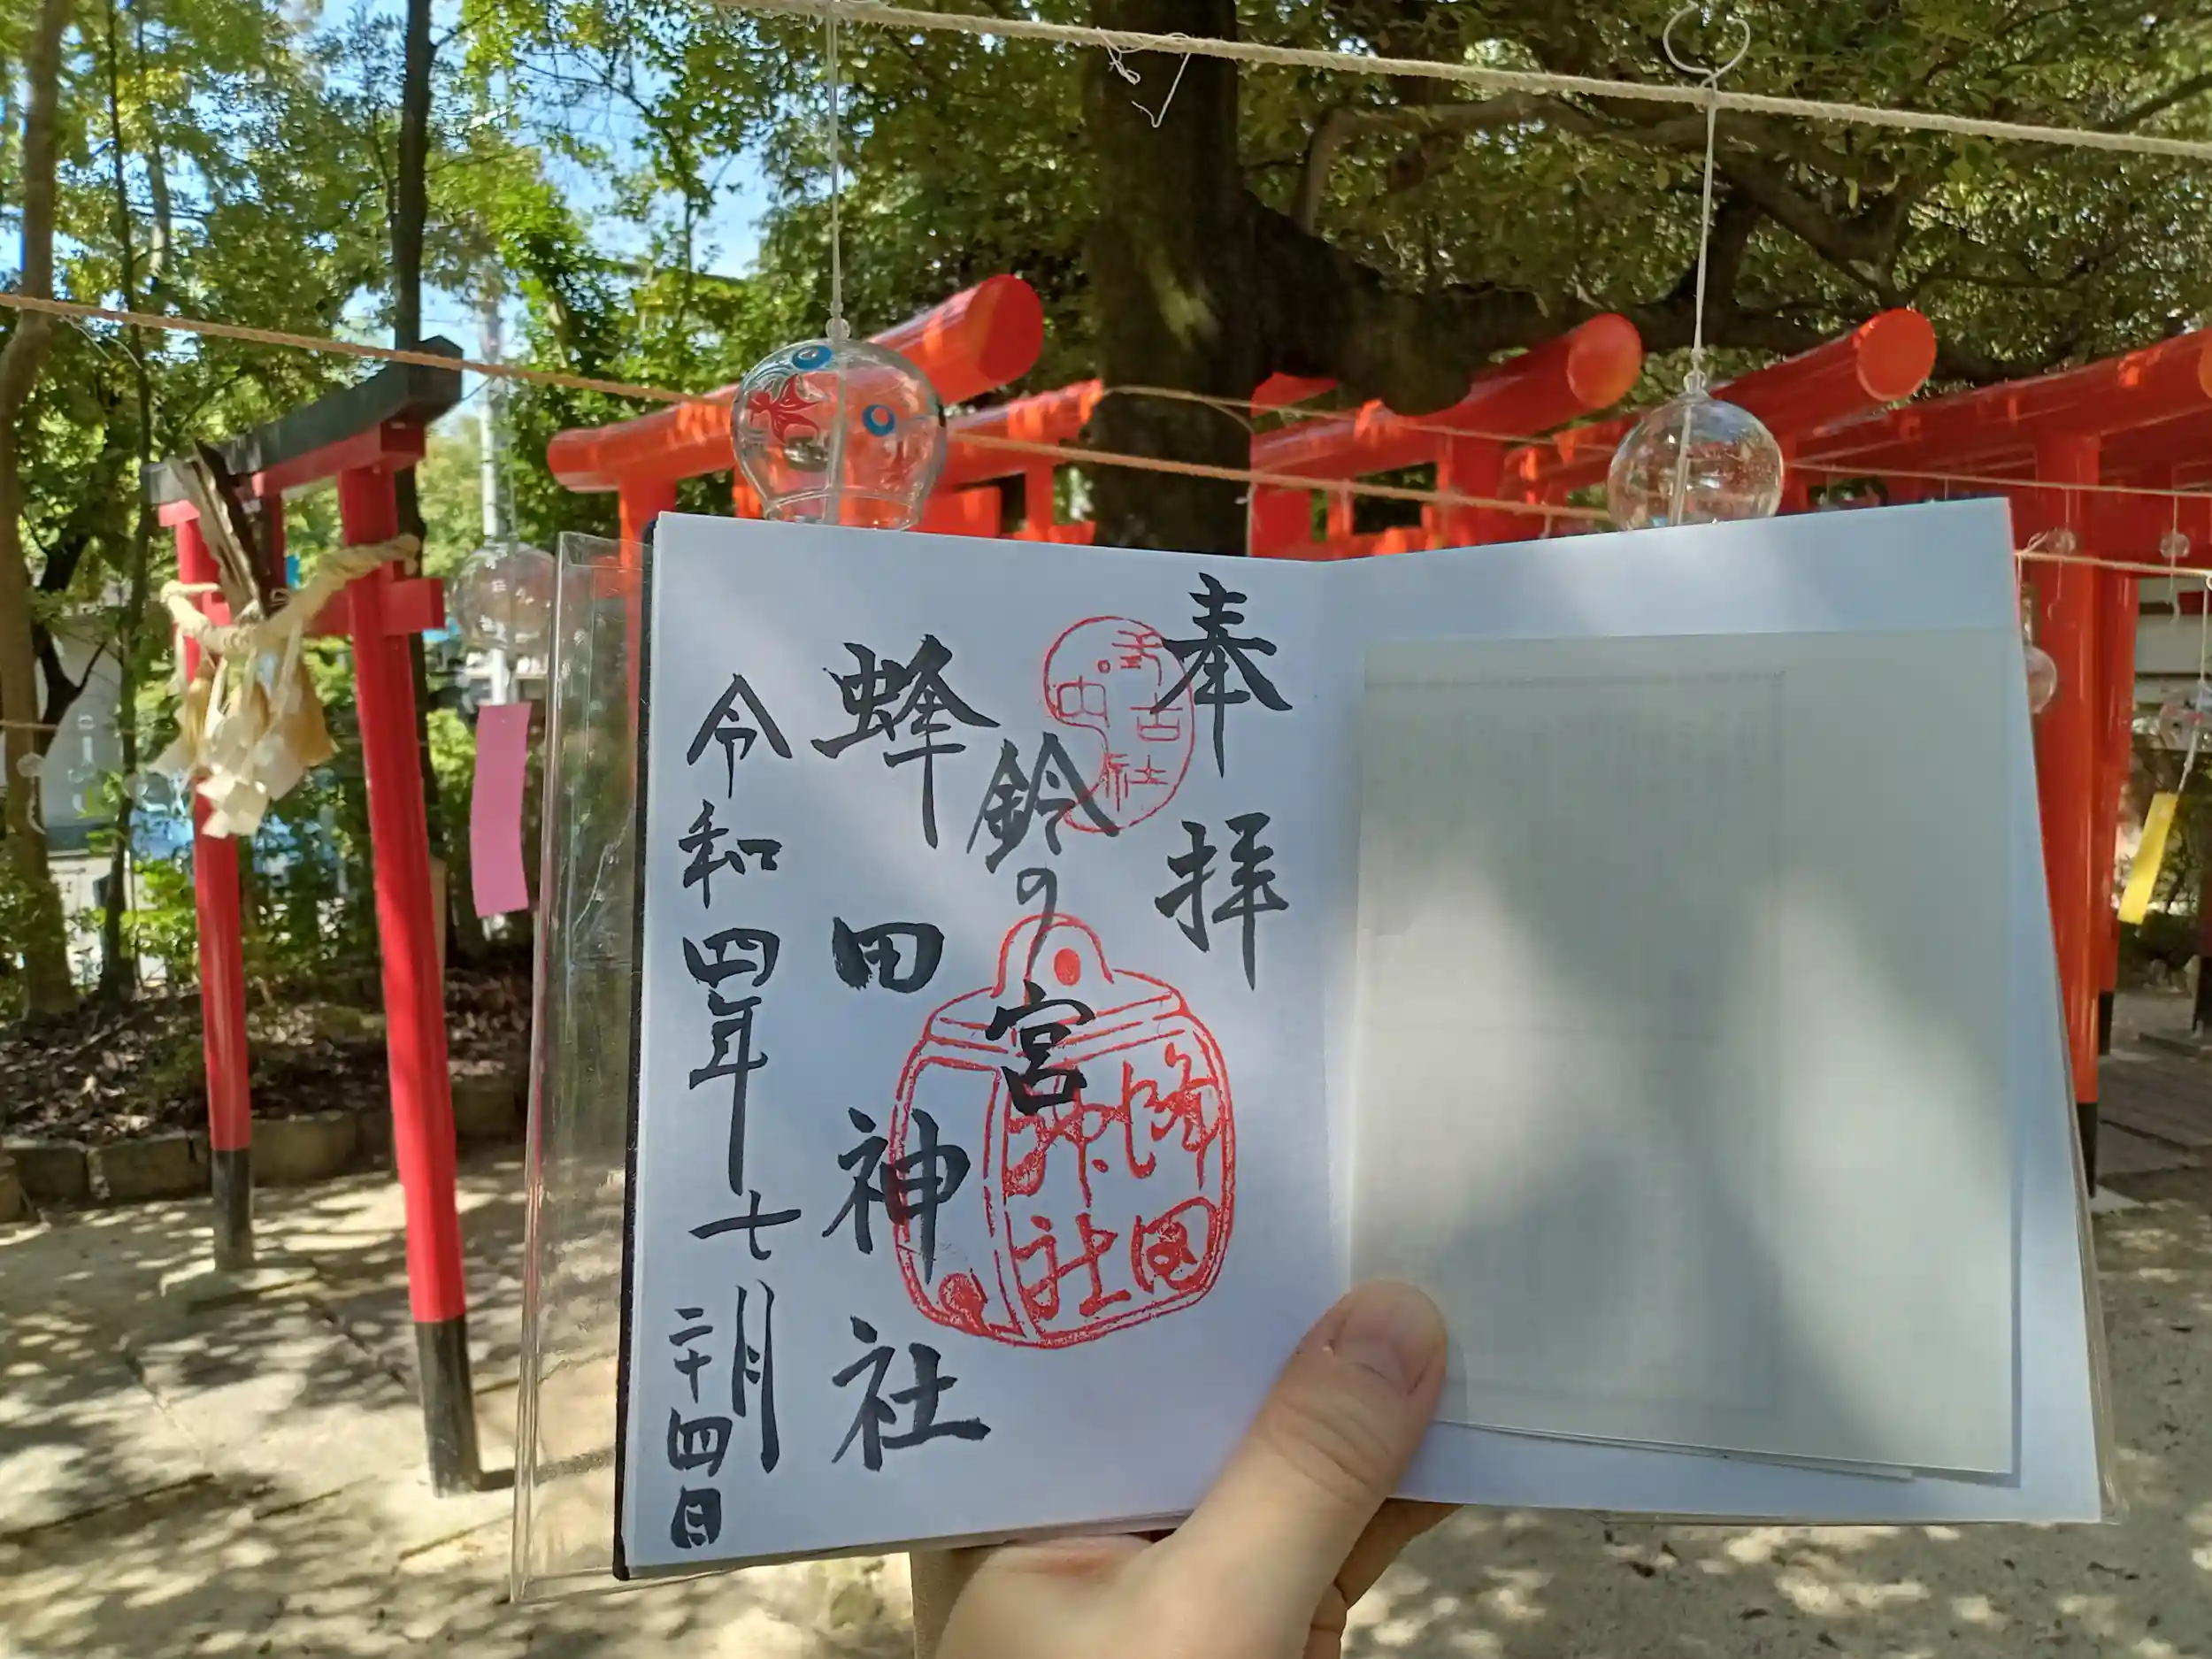 奉拝
鈴の宮
蜂田神社
令和四年七月
二十四日
蜂田
神社